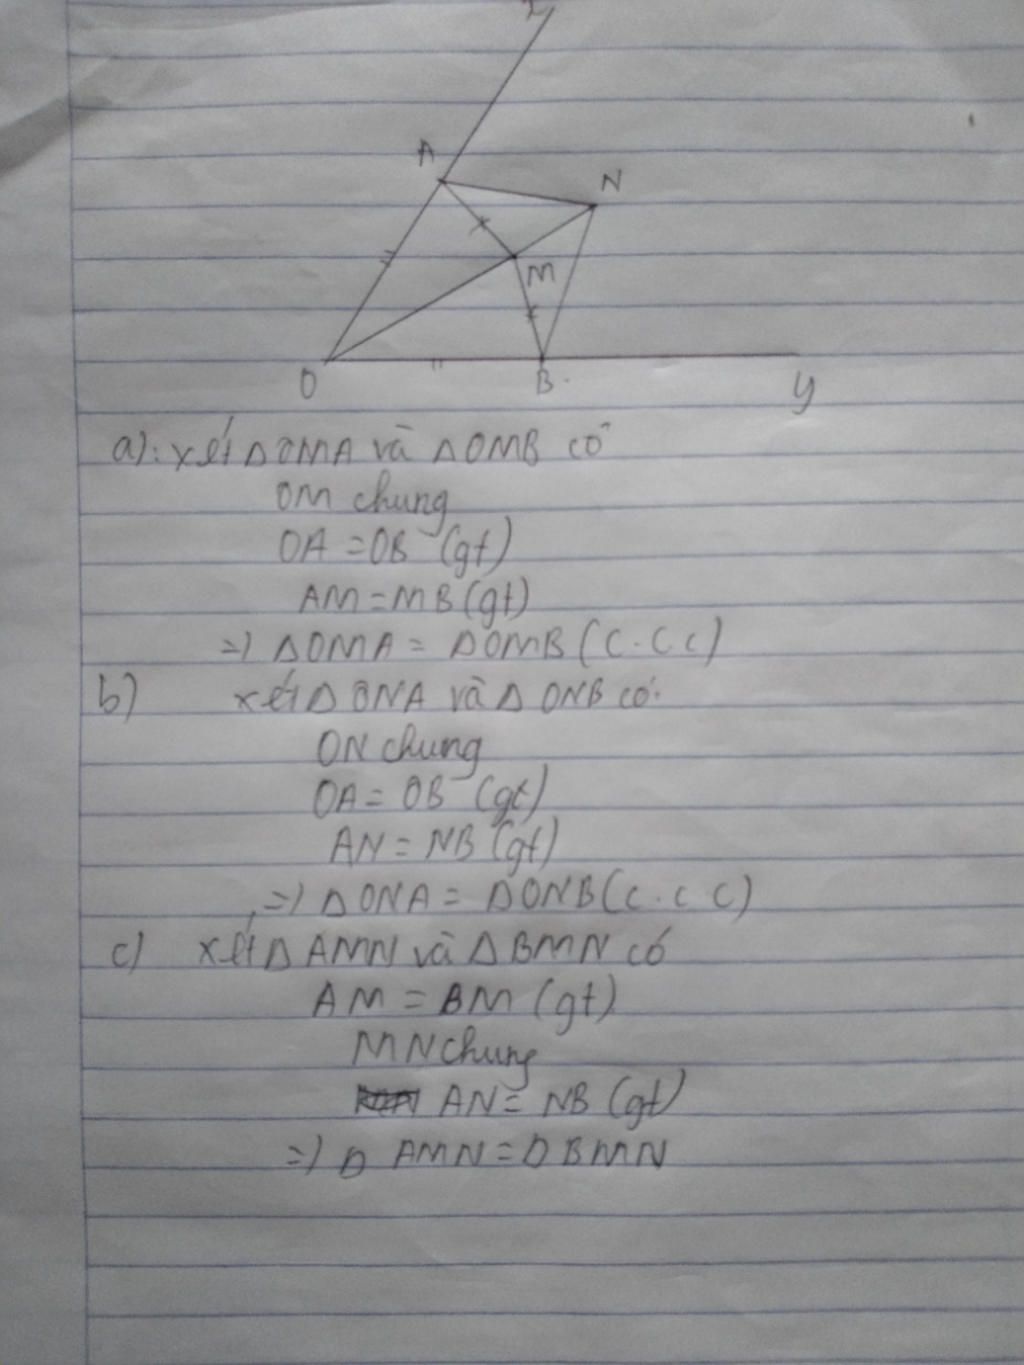 A
N
M
O
B
y
a): xét Δ OMA và Δ OMB có
OM chung
OA = OB (gt)
AM = MB (gt)
=) Δ OMA = Δ OMB (c.c c)
b) xét Δ ONA và Δ ONB có:
ON chung
OA = OB (gt)
AN = NB (gt)
=) Δ ONA = Δ ONB (c.c c)
c) xét Δ AMN và Δ BMN có
AM = BM (gt)
MN chung
AN = NB (gt)
=) Δ AMN = Δ BMN